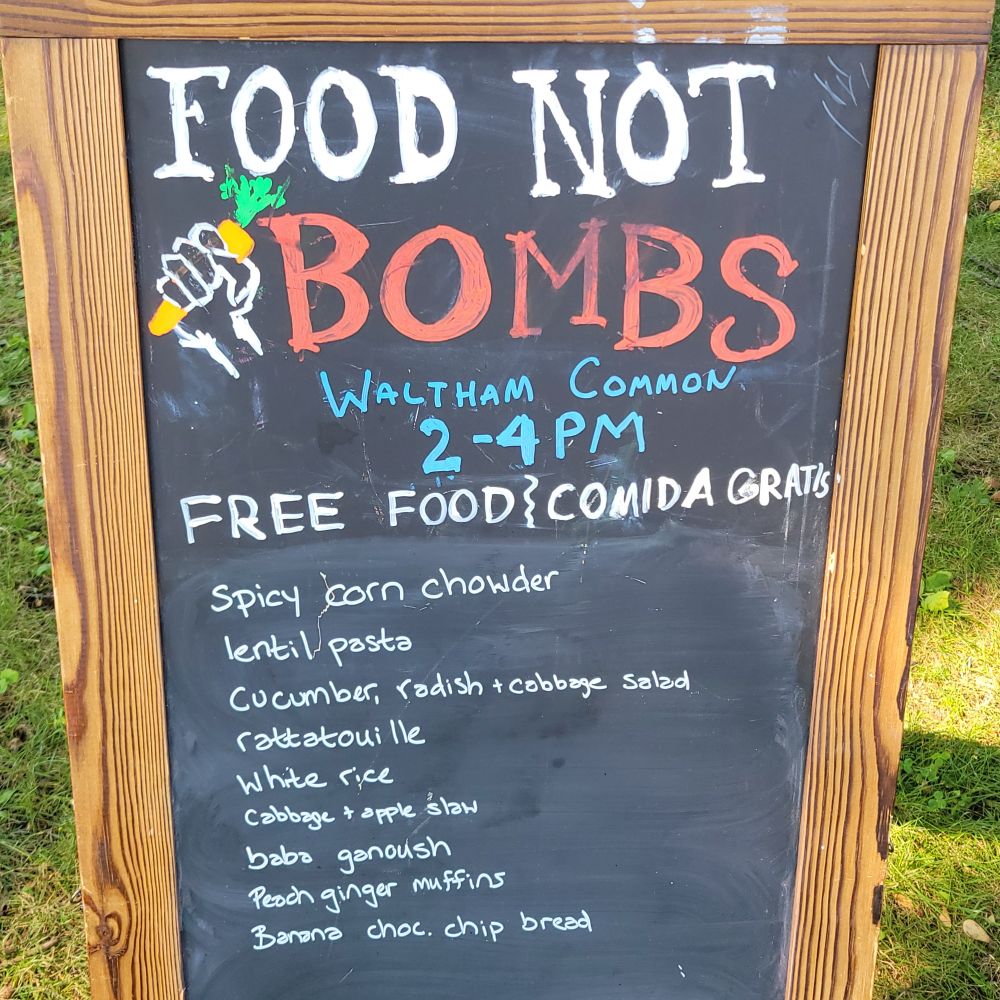 FOOD NOT
BOMBS
WALTHAM COMMON
2-4 PM
FREE FOOD COMIDA GRATIS
Spicy corn chowder
lentil pasta
Cucumber, radish + cabbage salad
rattatouille
White rice
Cabbage + apple slaw
baba ganoush
Peach ginger muffins
Banana choc. chip bread